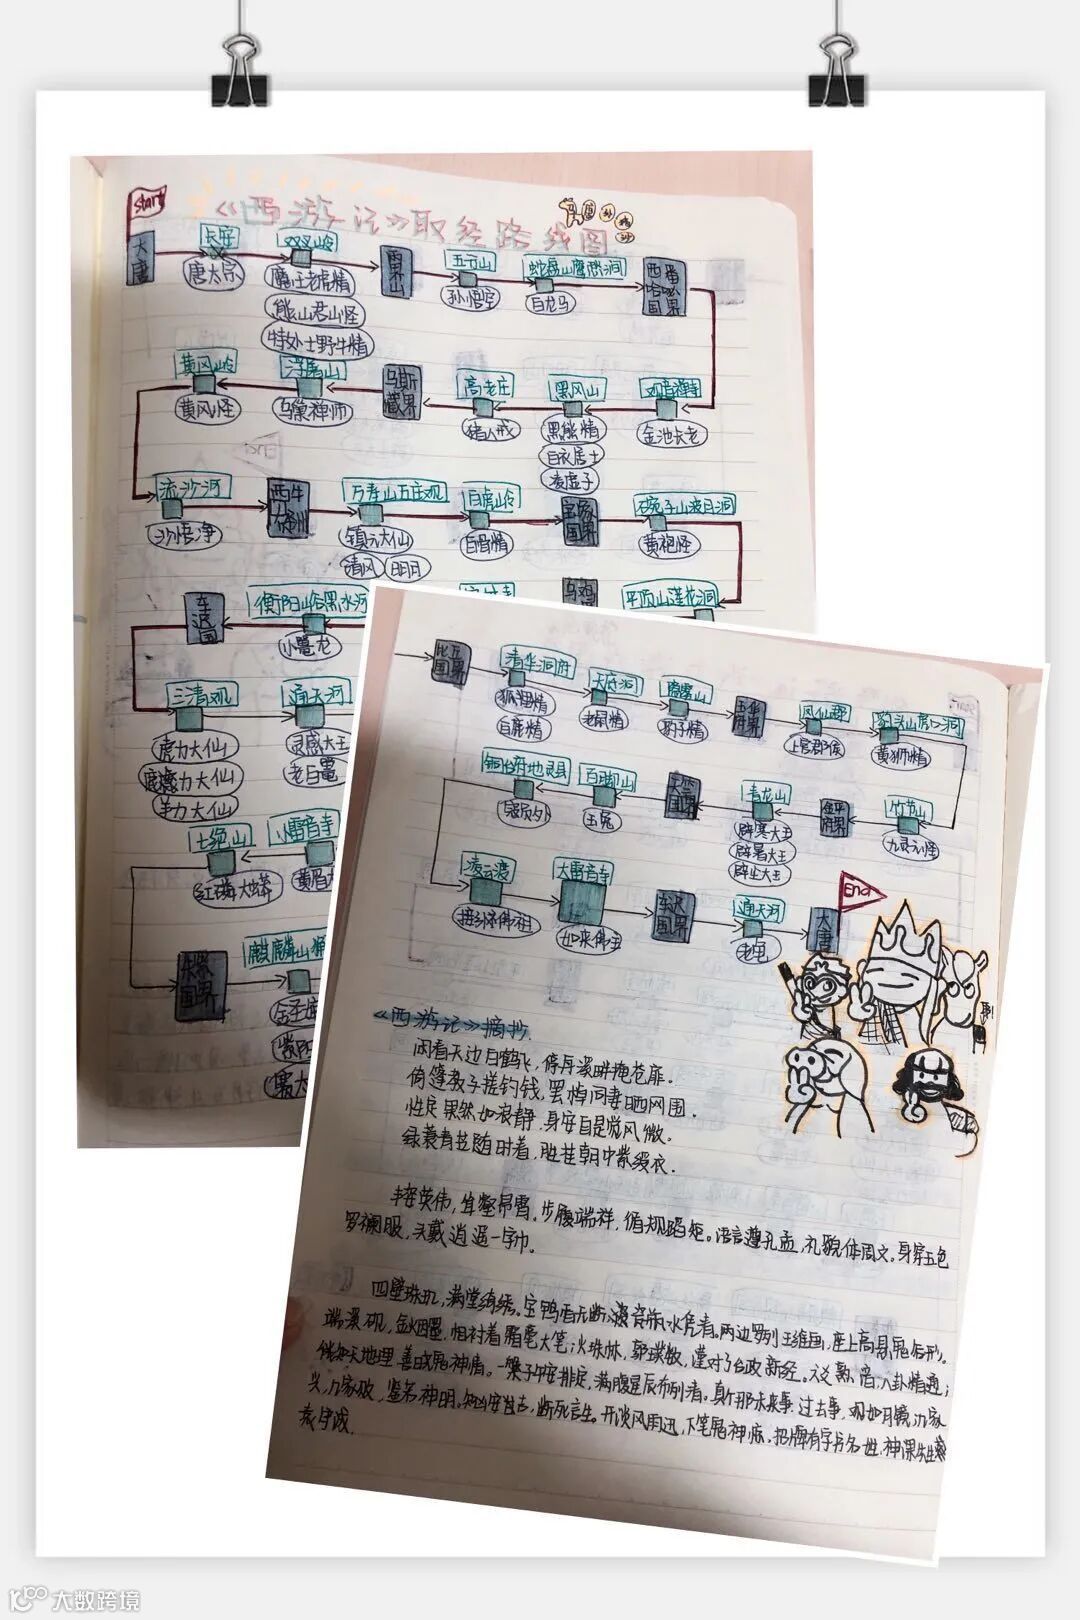 start
《西游记》取经路线图
大唐
长安
唐太宗
双叉岭
魔王老虎精
熊山君山怪
特处士野牛精
两界山
五行山
孙悟空
蛇盘山鹰愁涧
白龙马
西番哈咇国界
黄风岭
黄风怪
浮屠山
乌巢禅师
乌斯藏界
高老庄
猪八戒
黑风山
黑熊精
白衣居士
凌虚子
观音禅寺
金池长老
流沙河
沙悟净
西牛
万寿山五庄观
镇元大仙
清风
明月
白虎岭
白骨精
宝象国界
碗子山波月洞
黄袍怪
车迟国
衡阳峪黑水河
小鼍龙
乌鸡
平顶山莲花洞
三清观
虎力大仙
鹿力大仙
羊力大仙
通天河
灵感大王
老白鼋
七绝山
红鳞大蟒
小雷音寺
黄眉
朱紫国界
麒麟山
比丘国界
清华洞府
狐狸精
白鹿精
无底洞
老鼠精
隐雾山
豹子精
凤仙郡
上官郡侯
豹头山虎口洞
黄狮精
铜台府地灵县
寇员外
百脚山
玉兔
青龙山
辟寒大王
辟暑大王
辟尘大王
竹节山
九灵元怪
凌云渡
接引佛祖
大雷音寺
如来佛主
车迟国界
通天河
老鼋
大唐
End
《西游记》摘抄
闲看天边白鹤飞，停舟溪畔掩苍扉。
倚篷教子搓钓线，罢棹同妻晒网围。
性定果然如浪静，身安自是觉风微。
绿蓑青笠随时着，胜挂朝中紫绶衣。
丰姿英伟，耸壑昂霄。步履端祥，循规蹈矩。语言遵孔孟，礼貌体周文。身穿五色
罗襕服，头戴逍遥一字巾。
四壁珠玑，满堂绮绣。宝鸭香无断，瓷瓶水凭清。两边罗列王维画，座上高悬鬼谷形。
端溪砚，金烟墨，相衬着霜毫大笔；火珠林，郭璞数，谨对了台政新经。六爻熟谙，八卦精通；
大数跨境